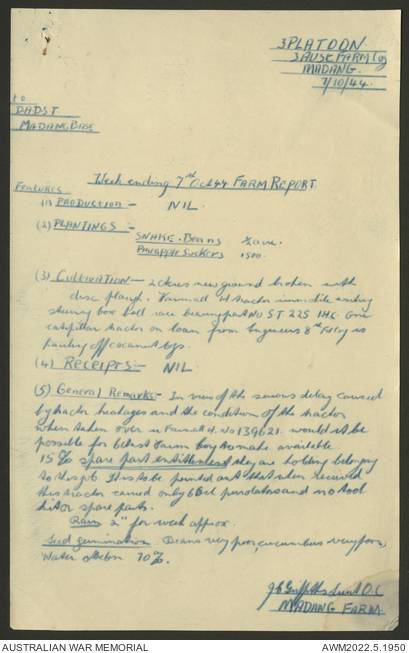 3 PLATOON.
3 AUST FARM Coy
MADANG.
7/10/44.
TO
DADST
MADANG BASE
Week ending 7th Oct 44 FARM REPORT
Features
(1) PRODUCTION - NIL.
(2) PLANTINGS :-
SNAKE. Beans ½ acre.
PINEAPPLE Suckers 1500.
(3) CULTIVATION - 2 acres new ground broken with
disc plough. Farmall H tractor immobile awaiting
steering box ball race bearing part NO ST 225 IHC. One
caterpillar tractor on loan from Engineers 8th Fd Coy is
hauling off coconut logs.
(4) RECEIPTS :- NIL
(5) General Remarks :- In view of the serious delay caused
by tractor breakages and the condition of the tractor
when taken over ie Farmall H. No 139621. would it be
possible for 6 Aust Farm Coy to make available
15% spare part entitlement they are holding belonging
to this job. It is to be pointed out that when received
this tractor carried only 6 Bed perolators and no tool
kit or spare parts.
Rain 2" for week approx.
Seed germination. Beans very poor, cucumbers very poor,
Water Melon 70%.
Griffiths Lieut O.C
MADANG FARM
AUSTRALIAN WAR MEMORIAL
AWM2022.5.1950